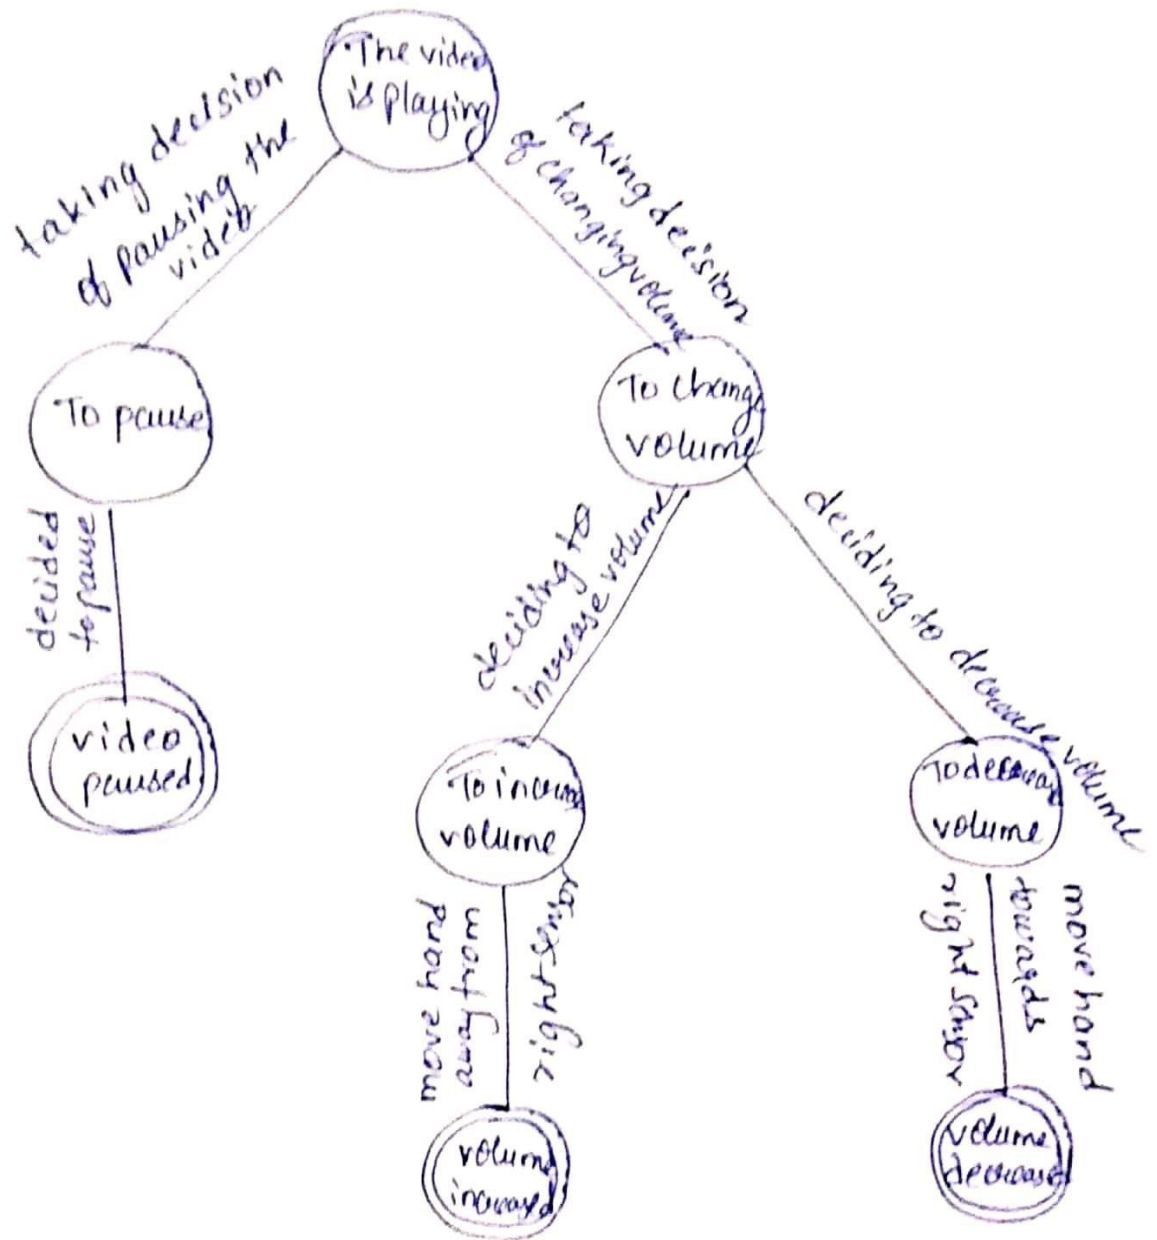 The video
is playing
taking decision
of pausing the
video
taking decision
of changing volume
To pause
To change
volume
decided
to pause
deciding to
increase volume
deciding to decrease volume
video
paused
To increase
volume
To decrease
volume
move hand
away from
right sensor
move hand
towards
right sensor
volume
increased
volume
decrease